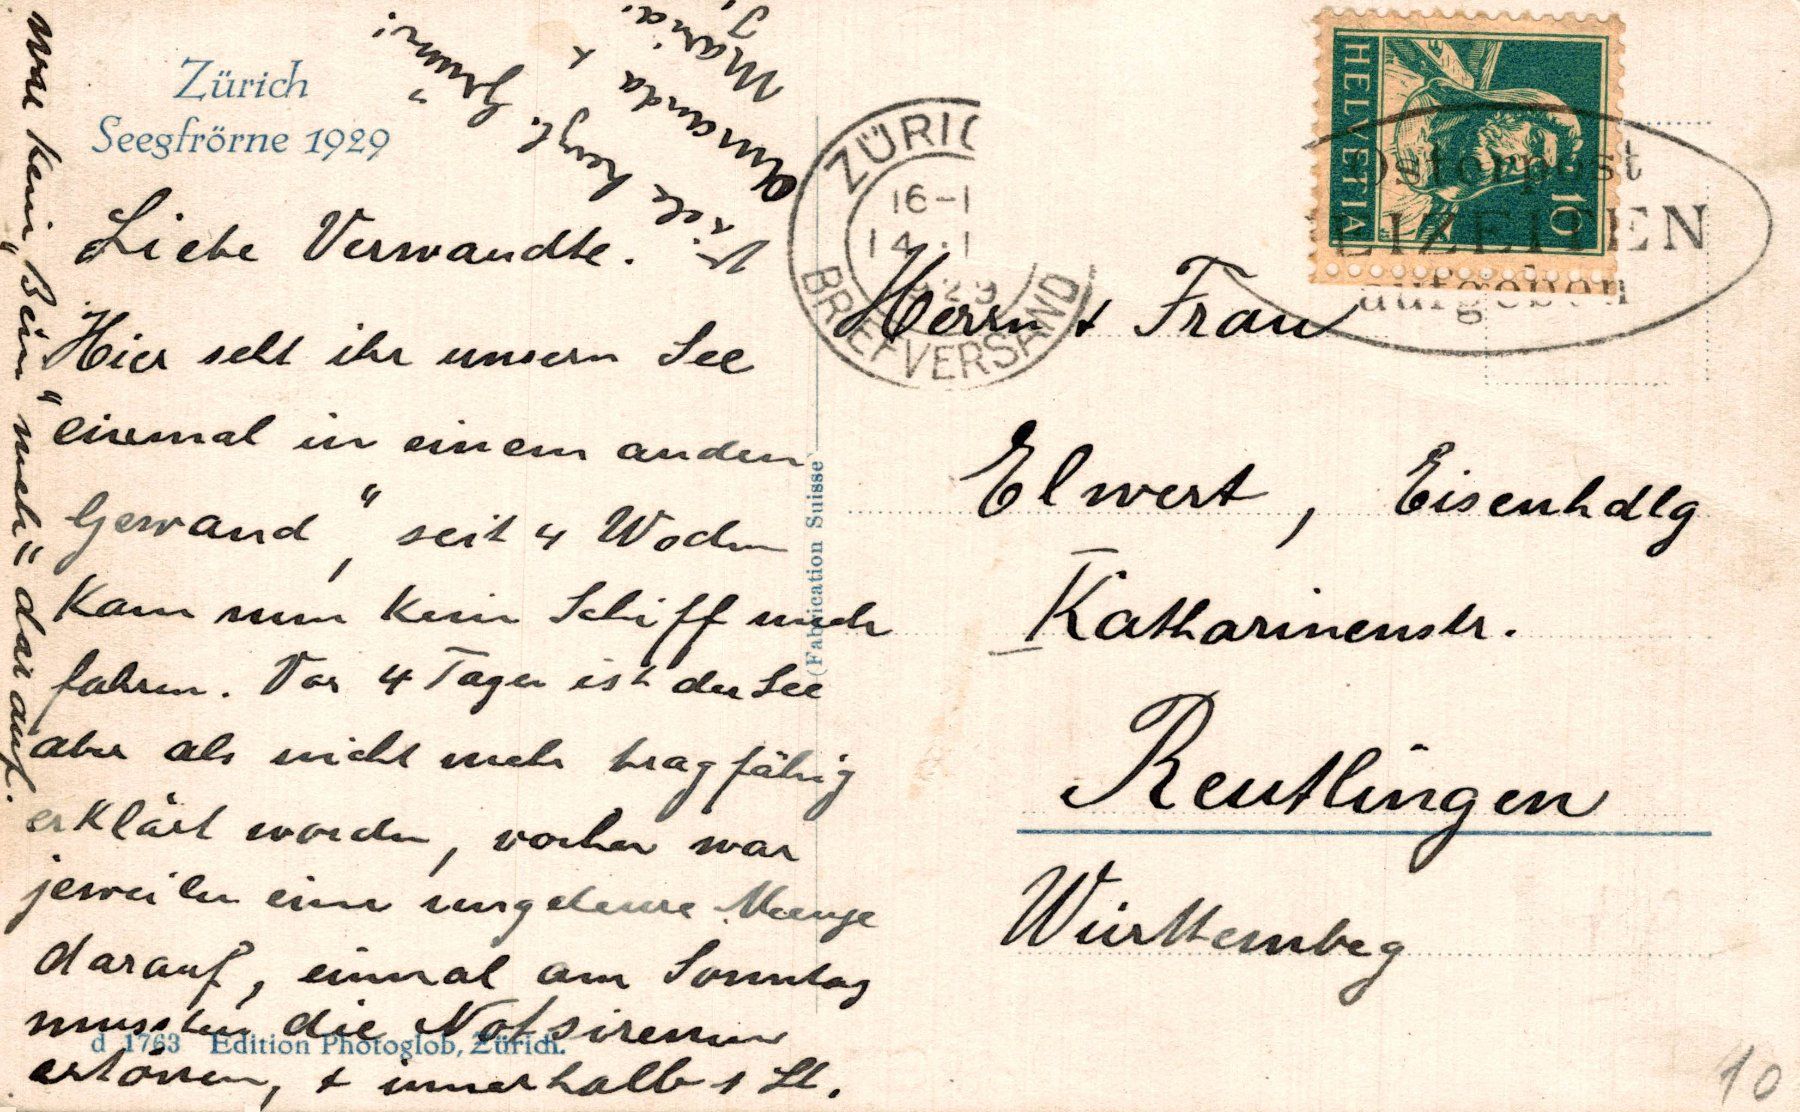 Zürich
Seegfrörne 1929
Liebe Verwandte.
Hier seht ihr unsern See
einmal in einem andern
Gewand", seit 4 Wochen
kann nun kein Schiff mehr
fahren. Vor 4 Tagen ist der See
aber als nicht mehr tragfähig
erklärt worden, vorher war
jeweilen eine ungeheure Menge
darauf, einmal am Sonntag
mussten die Notsirenen
ertönen, + innerhalb 1 St.
war kein "Bein" mehr darauf.
Viele herzl. Grüsse
Amanda +
Maria.
d 1763 Edition Photoglob, Zürich.
(Fabrication Suisse)
ZÜRIC
16-1
14.
1929
BRIEFVERSAND
HELVETIA
10
Osterpost
EIZEITEN
aufgeben
Herrn + Frau
Elwert, Eisenhdlg
Katharinenstr.
Reutlingen
Württemberg
10